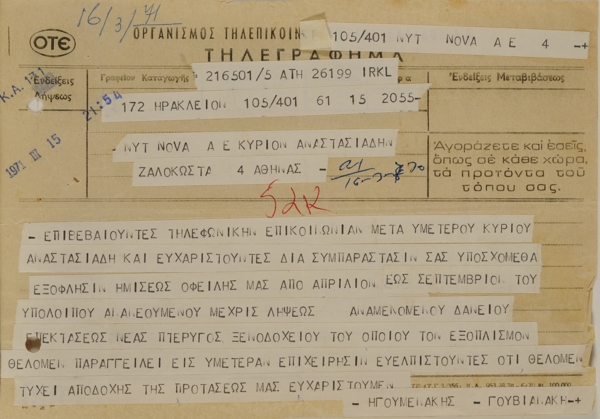 16/3/71
ΟΤΕ
ΟΡΓΑΝΙΣΜΟΣ ΤΗΛΕΠΙΚΟΙΝ
105/401 ΝΥΤ NOVA A E 4 -+
ΤΗΛΕΓΡΑΦΗΜΑ
Ἐνδείξεις Λήψεως
Γραφεῖον Καταγωγῆς
Ἐνδείξεις Μεταβιβάσεως
216501/5 ATH 26199 IRKL
K.A. 171
21:54
172 ΗΡΑΚΛΕΙΟΝ 105/401 61 15 2055-
1971 III 15
ΝΥΤ NOVA A E ΚΥΡΙΟΝ ΑΝΑΣΤΑΣΙΑΔΗΝ
ΖΑΛΟΚΩΣΤΑ 4 ΑΘΗΝΑΣ -
Ἀγοράζετε καί ἐσεῖς,
ὅπως σέ κάθε χώρα,
τά προϊόντα τοῦ
τόπου σας.
- ΕΠΙΒΕΒΑΙΟΥΝΤΕΣ ΤΗΛΕΦΩΝΙΚΗΝ ΕΠΙΚΟΙΝΩΝΙΑΝ ΜΕΤΑ ΥΜΕΤΕΡΟΥ ΚΥΡΙΟΥ
ΑΝΑΣΤΑΣΙΑΔΗ ΚΑΙ ΕΥΧΑΡΙΣΤΟΥΝΤΕΣ ΔΙΑ ΣΥΜΠΑΡΑΣΤΑΣΙΝ ΣΑΣ ΥΠΟΣΧΟΜΕΘΑ
ΕΞΟΦΛΗΣΙΝ ΗΜΙΣΕΩΣ ΟΦΕΙΛΗΣ ΜΑΣ ΑΠΟ ΑΠΡΙΛΙΟΝ ΕΩΣ ΣΕΠΤΕΜΒΡΙΟΝ ΤΟΥ
ΥΠΟΛΟΙΠΟΥ ΑΝΑΝΕΟΥΜΕΝΟΥ ΜΕΧΡΙΣ ΛΗΨΕΩΣ ΑΝΑΜΕΝΟΜΕΝΟΥ ΔΑΝΕΙΟΥ
ΕΠΕΚΤΑΣΕΩΣ ΝΕΑΣ ΠΤΕΡΥΓΟΣ ΞΕΝΟΔΟΧΕΙΟΥ ΤΟΥ ΟΠΟΙΟΥ ΤΟΝ ΕΞΟΠΛΙΣΜΟΝ
ΘΕΛΟΜΕΝ ΠΑΡΑΓΓΕΙΛΕΙ ΕΙΣ ΥΜΕΤΕΡΑΝ ΕΠΙΧΕΙΡΗΣΙΝ ΕΥΕΛΠΙΣΤΟΥΝΤΕΣ ΟΤΙ ΘΕΛΟΜΕΝ
ΤΥΧΕΙ ΑΠΟΔΟΧΗΣ ΤΗΣ ΠΡΟΤΑΣΕΩΣ ΜΑΣ ΕΥΧΑΡΙΣΤΟΥΜΕΝ
- ΗΓΟΥΜΕΝΑΚΗΣ - ΓΟΥΒΙΑΝΑΚΗ -+